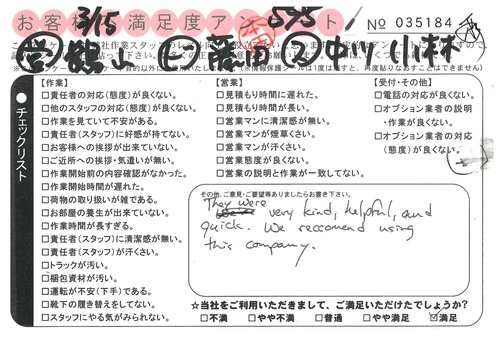 お客様満足度アンケート
3/15
5945
No 035184
チェックリスト
【作業】
□責任者の対応(態度)が良くない。
□他のスタッフの対応(態度)が良くない。
□作業を見ていて不安がある。
□責任者(スタッフ)に好感が持てない。
□お客様への挨拶が出来ていない。
□ご近所への挨拶・気遣いが無い。
□作業開始前の内容確認がなかった。
□作業開始時間が遅れた。
□荷物の取り扱いが雑である。
□お部屋の養生が出来ていない。
□作業時間が長すぎる。
□責任者(スタッフ)に清潔感が無い。
□責任者(スタッフ)が汗くさい。
□トラックが汚い。
□梱包資材が汚い。
□運転が不安(下手)である。
□靴下の履き替えをしてない。
□スタッフにやる気がみられない。
【営業】
□見積もり時間に遅れた。
□見積もり時間が長い。
□営業マンに清潔感が無い。
□営業マンが煙草くさい。
□営業マンが汗くさい。
□営業態度が良くない。
□営業の説明と作業が一致してない。
【受付・その他】
□電話の対応が良くない。
□オプション業者の説明・作業が良くない。
□オプション業者の対応(態度)が良くない。
その他、ご意見・ご要望等ありましたらお書き下さい。
They were very kind, helpful, and
quick. We reccomend using
this company.
☆当社をご利用いただきまして、ご満足いただけたでしょうか?
□不満 □やや不満 □普通 □やや満足 ☑満足